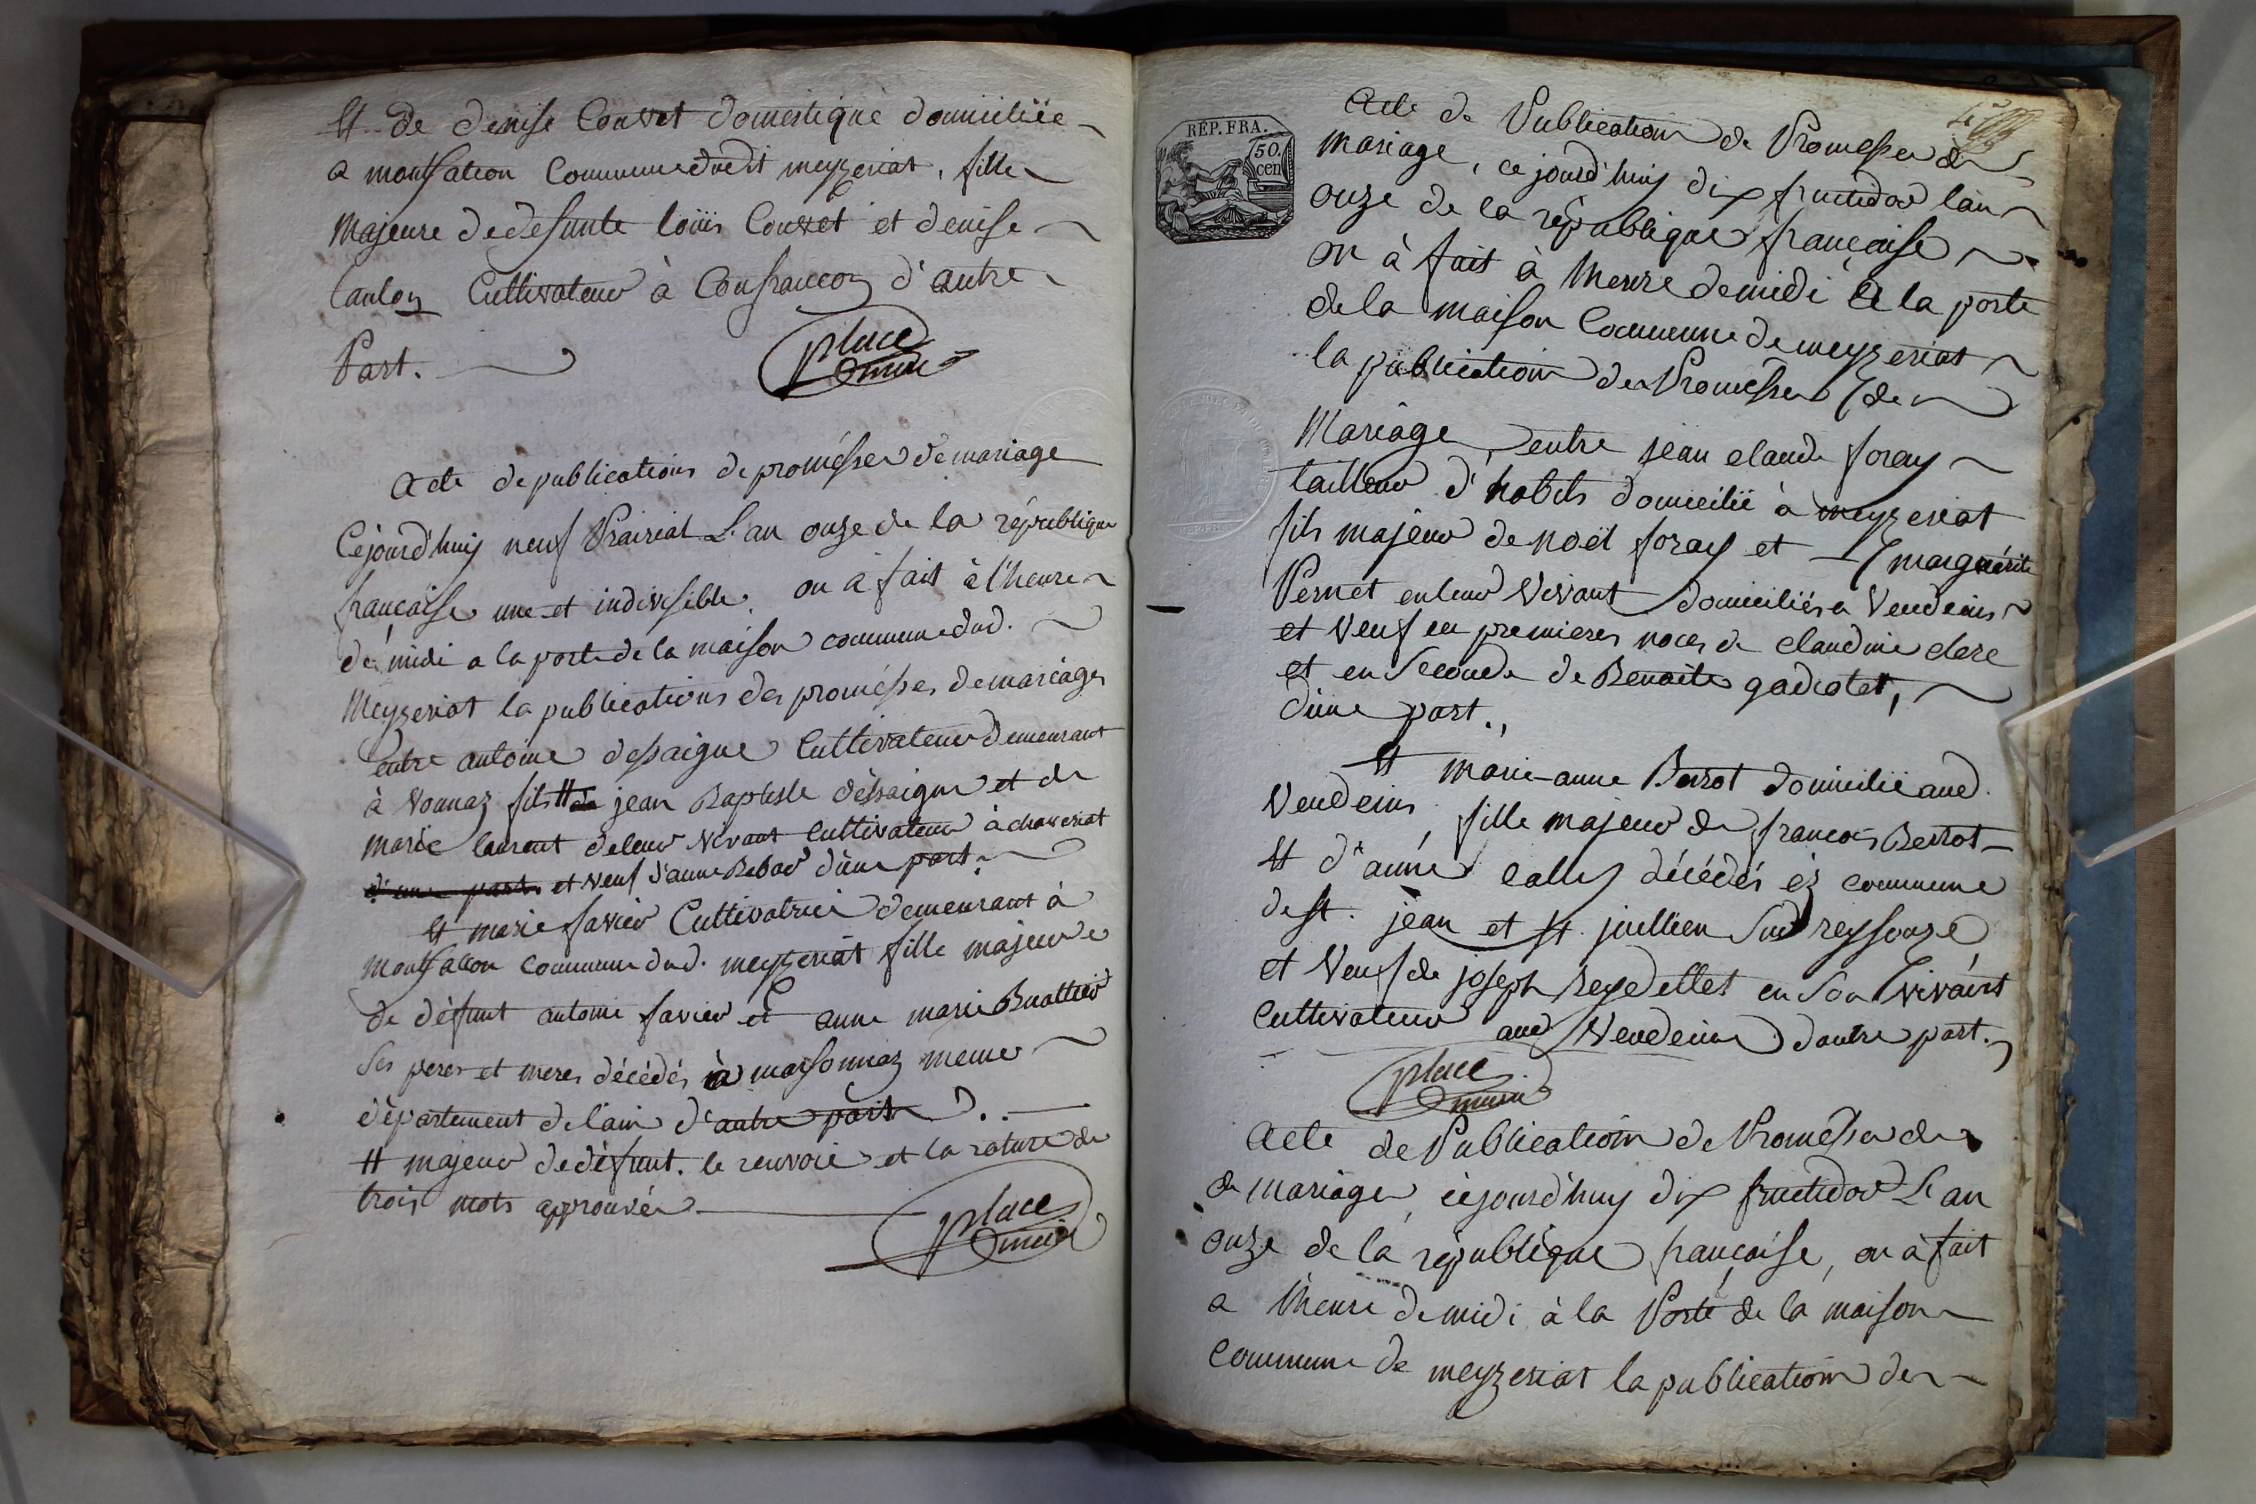 Et de denise Convet domestique domiciliée
a montfalcon commune dudit meyzeriat, fille
majeure de defunte loüis Convet et denise
Caulon Cultivateur à Confrancon d'autre
Part.
place
maire
Acte de publications de promésses de mariage
Cejourd'huy neuf Prairial L'an onze de la république
française une et indivisible. on a fait à l'heure
de midi a la porte de la maison commune dud.
Meyzeriat la publications des promésses de mariages
entre antoine dessaigne Cultivateur demeurant
à vonnaz fils # de jean Baptiste dessaigne et de
marie laurent deleur vivant Cultivateur à chaveriat
d'une part. et veuf d'anne Rebad d'une part.
Et marie favier Cultivatrice demeurant à
montfalcon commune dud. meyzeriat fille majeure
de défunt antoine favier et anne marie Buattier
ses peres et meres décédés à marsonnaz meme
département de lain d'autre part.
# majeur de défunt. le renvoie et la rature de
trois mots approuvés
place
maire
RÉP. FRA.
50
cen
Acte de Publication de Promesses de
mariage, cejourd'huy dix fructidor l'an
onze de la république française
on à fait à l'heure de midi à la porte
de la maison Commune de meyzeriat
la publication des Promesses de
Mariage, entre jean claude foray
tailleur d'habits domicilié à meyzeriat
fils majeur de noël foray et marguérite
Pernet enleur vivant domiciliés a vendeins
et veuf en premieres noces de claudine clere
et en seconde de Benoite gadiolet,
d'une part.,
Et marie-anne Berrot domicilié aud.
vendeins, fille majeur de françois Berrot
Et d'anne calley décédés éz commune
de st. jean et st. jullien sur reyssouze
et veuf de joseph Reydellet en son vivant
cultivateur aud. Vendeins d'autre part.
place
maire
Acte de Publication de Promesses de
de mariage, cejourd'huy dix fructidor L'an
onze de la république française, on à fait
a l'heure de midi à la Porte de la maison
commune de meyzeriat la publication des